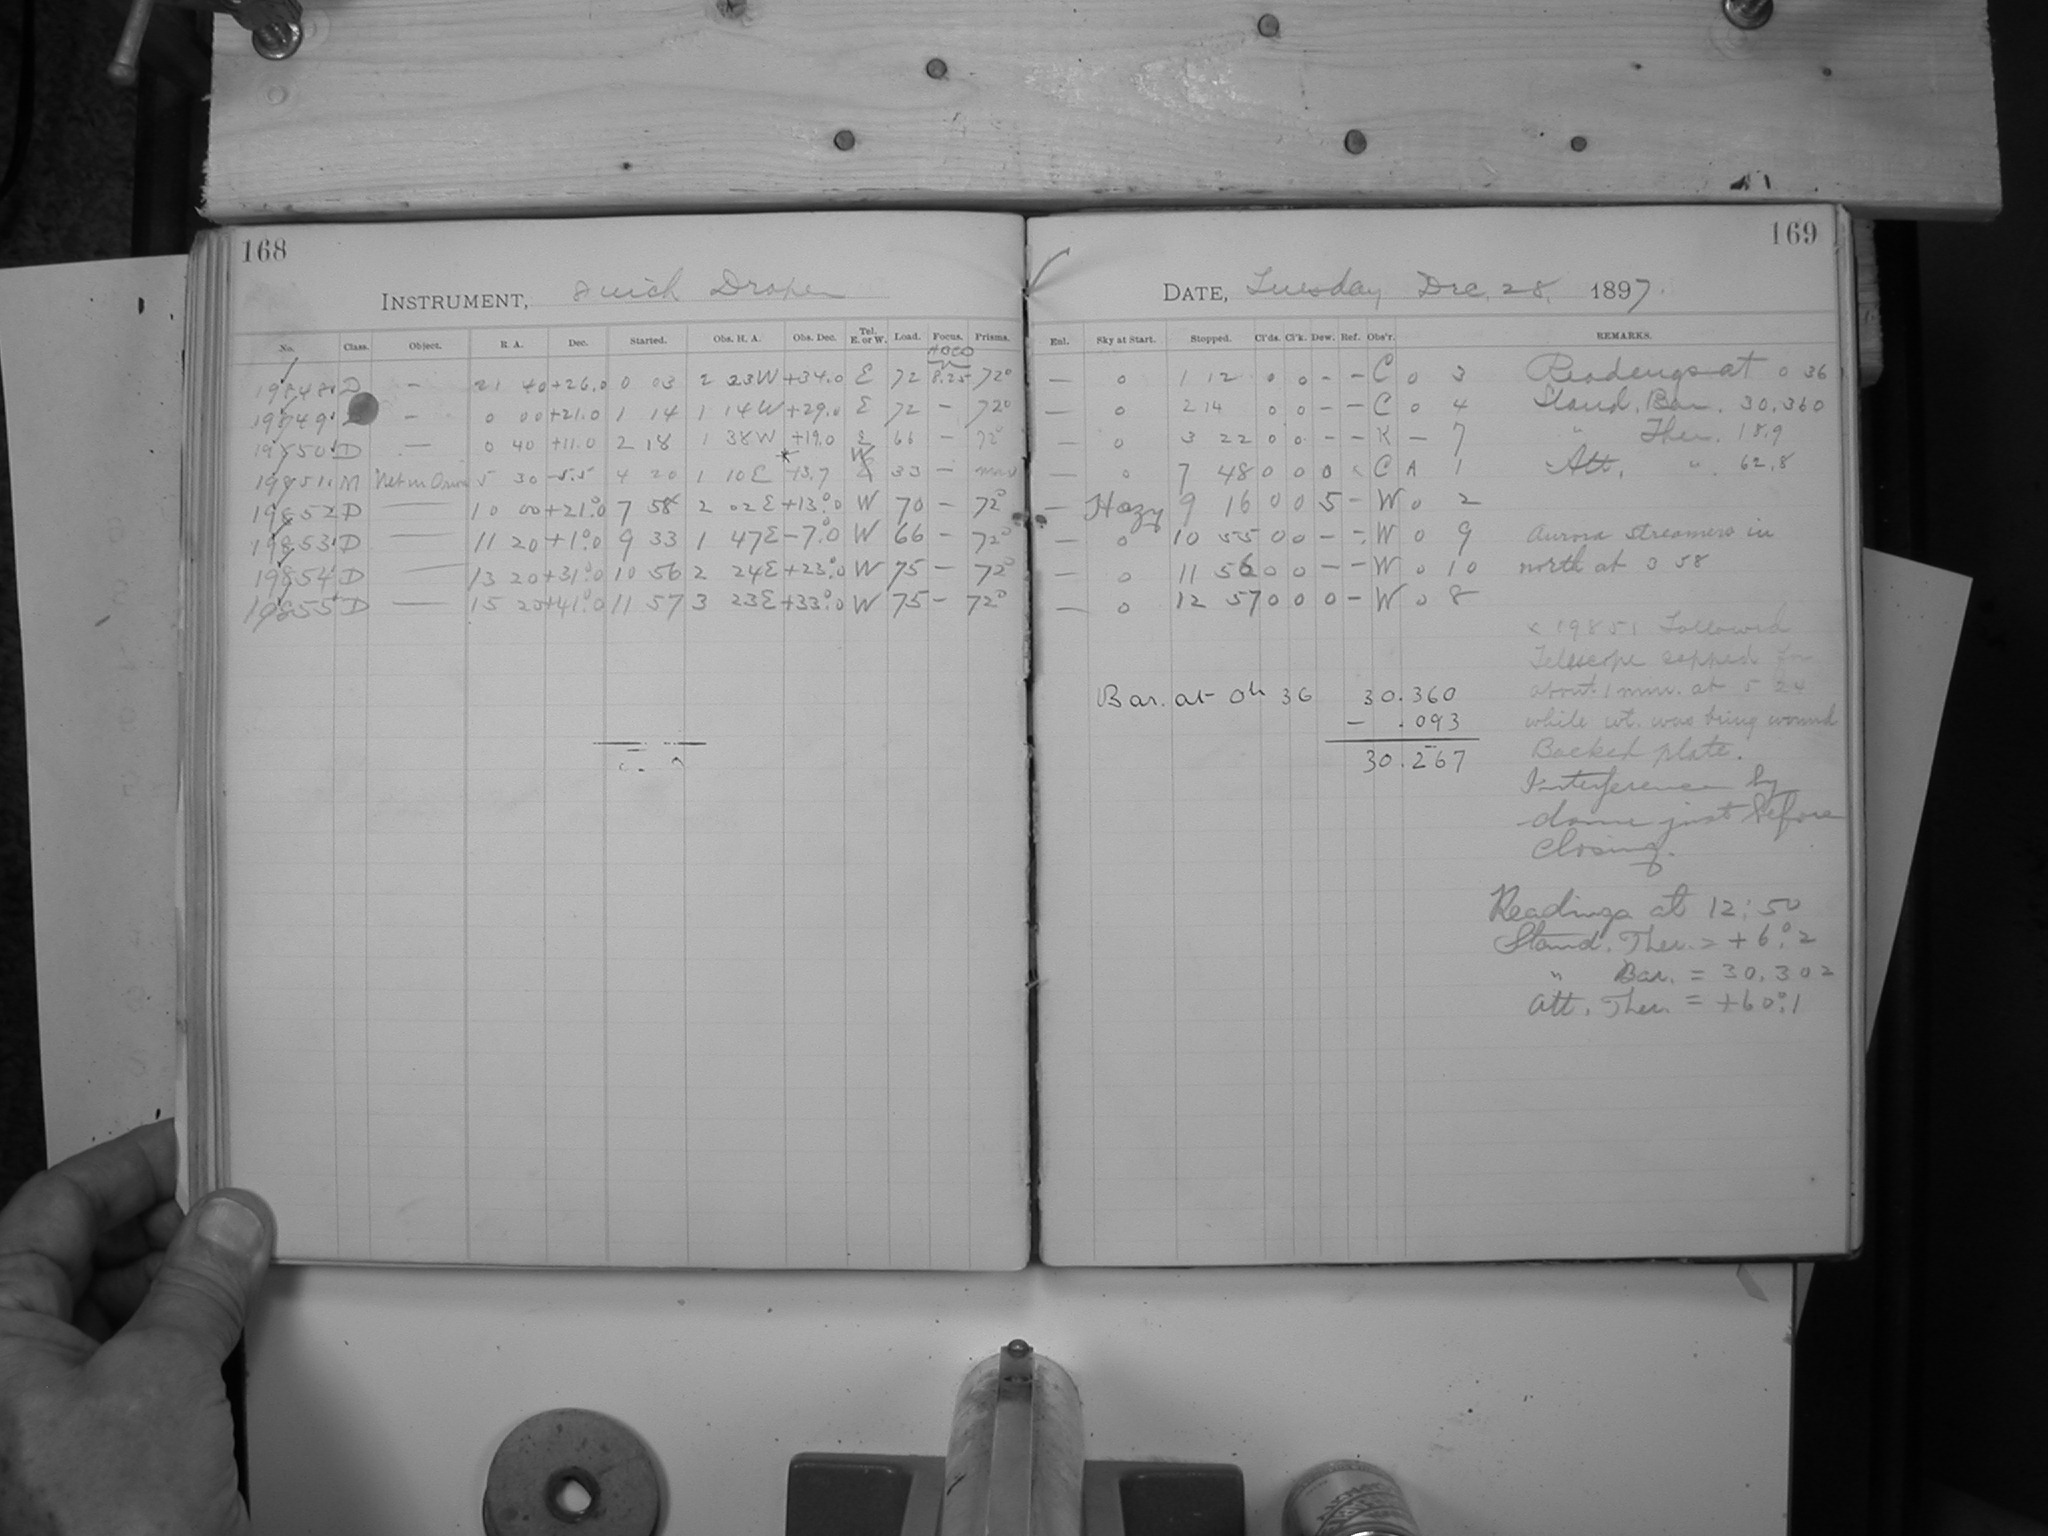 168
INSTRUMENT, 8 inch Draper
No. Class. Object. R. A. Dec. Started. Obs. H. A. Obs. Dec. Tel. E. or W. Load. Focus. Prisms.
19848 D — 21 40 +26.0 0 03 2 23W +34.0 E 72 8.25 72°
19849 — 0 00 +21.0 1 14 1 14W +29.0 E 72 — 72°
19850 D — 0 40 +11.0 2 18 1 38W +19.0 E 66 — 72°
19851 M Neb. in Orion 5 30 -5.5 4 20 1 10E * 13.7 W 33 —
19852 D — 10 00 +21°.0 7 58 2 02E +13°.0 W 70 — 72°
19853 D — 11 20 +1°.0 9 33 1 47E -7°.0 W 66 — 72°
19854 D — 13 20 +31°.0 10 56 2 24E +23°.0 W 75 — 72°
19855 D — 15 20 +41°.0 11 57 3 23E +33°.0 W 75 — 72°
169
DATE, Tuesday Dec. 28, 1897.
Enl. Sky at Start. Stopped. Cl'ds. Cl'k. Dew. Ref. Obs'r. REMARKS.
— 0 1 12 0 0 - - C 0 3 Readings at 0 36
— 0 2 14 0 0 - - C 0 4 Stand. Bar. 30.360
— 0 3 22 0 0 - - K — 7 " Ther. 18.9
— 0 7 48 0 0 0 C A 1 Att. " 62.8
— Hazy 9 16 0 0 5 - W 0 2
— 0 10 55 0 0 - - W 0 9 Aurora streamers in
— 0 11 56 0 0 - - W 0 10 north at 3 58
— 0 12 57 0 0 0 - W 0 8
x 19851 Followed
Telescope capped for
about 1 min. at 5 24
while wt. was being wound
Backed plate.
Interference by
dome just before
closing.
Bar. at 0h 36 30.360
— .093
30.267
Readings at 12:50
Stand. Ther. = +6°.2
" Bar. = 30.302
Att. Ther. = +60°.1